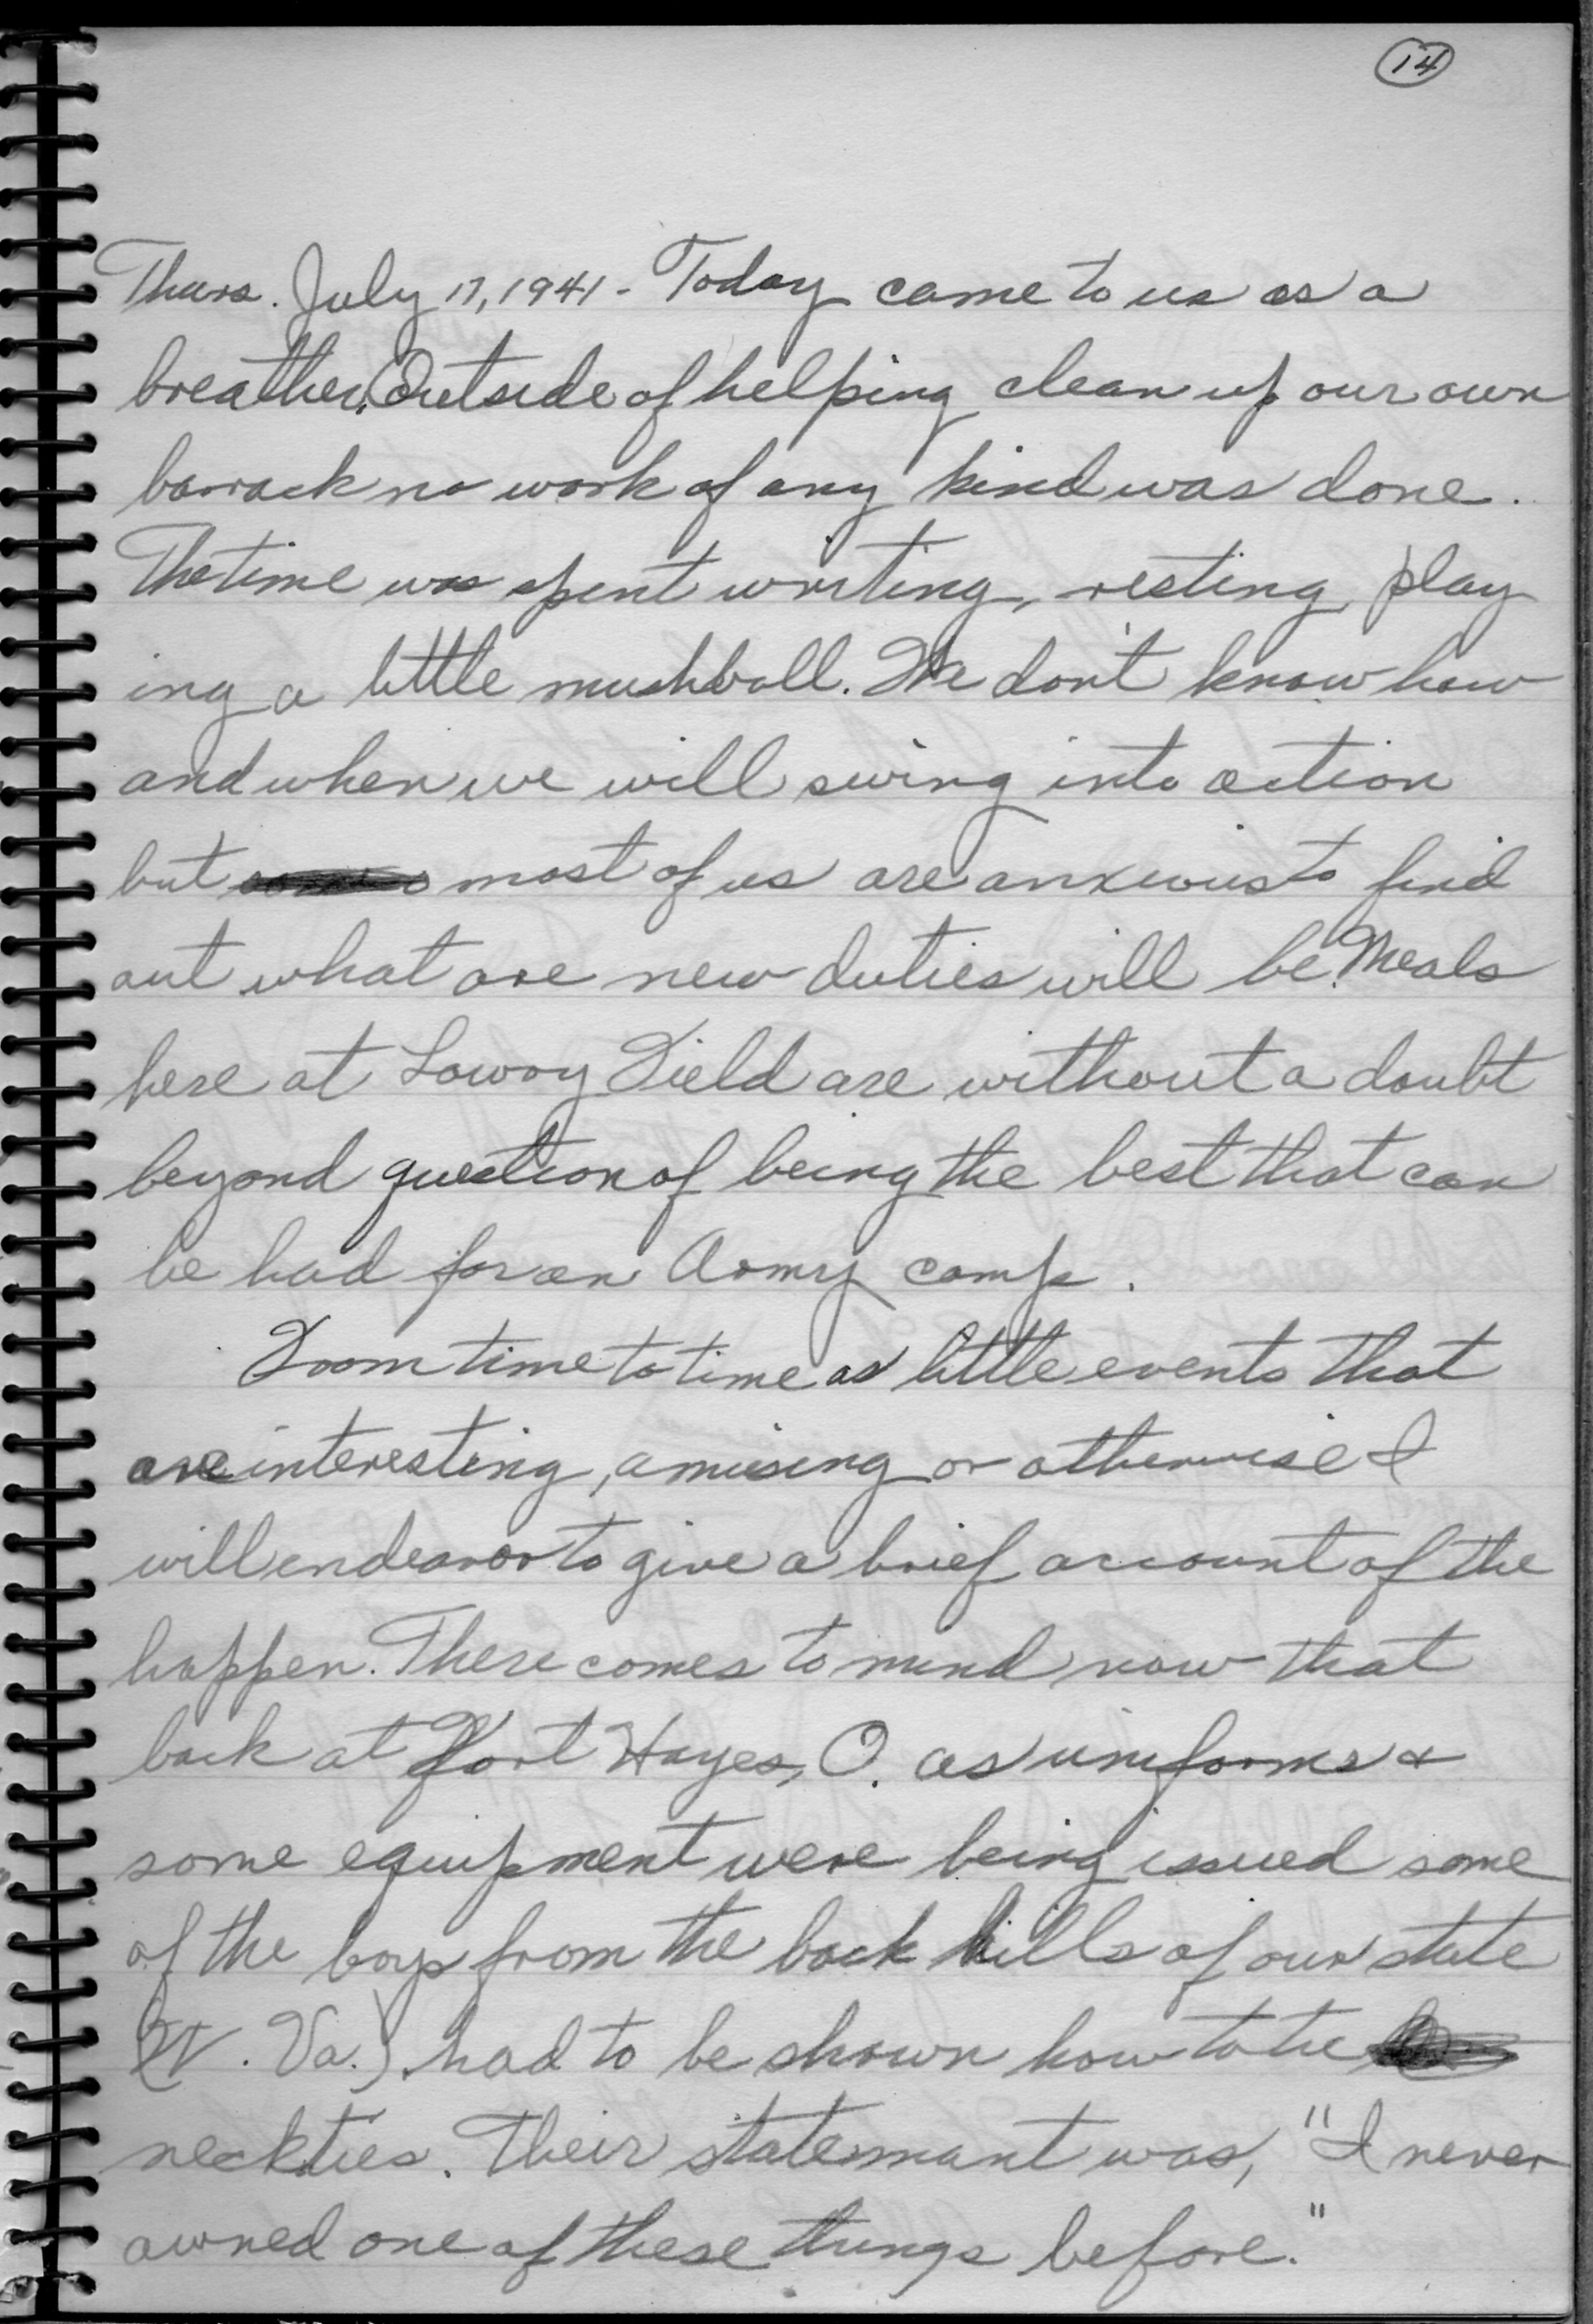 14
Thurs. July 17, 1941 - Today came to us as a
breather. Outside of helping clean up our own
barrack no work of any kind was done.
The time was spent writing, resting, play
ing a little mushball. We don't know how
and when we will swing into action
but most of us are anxious to find
out what are new duties will be. Meals
here at Lowry Field are without a doubt
beyond question of being the best that can
be had for an Army camp.
From time to time as little events that
are interesting, amusing or otherwise I
will endeavor to give a brief account of the
happen. There comes to mind now that
back at Fort Hayes, O. as uniforms &
some equipment were being issued some
of the boys from the back hills of our state
(W. Va.) had to be shown how to tie
neckties. Their statemant was, "I never
owned one of these things before."